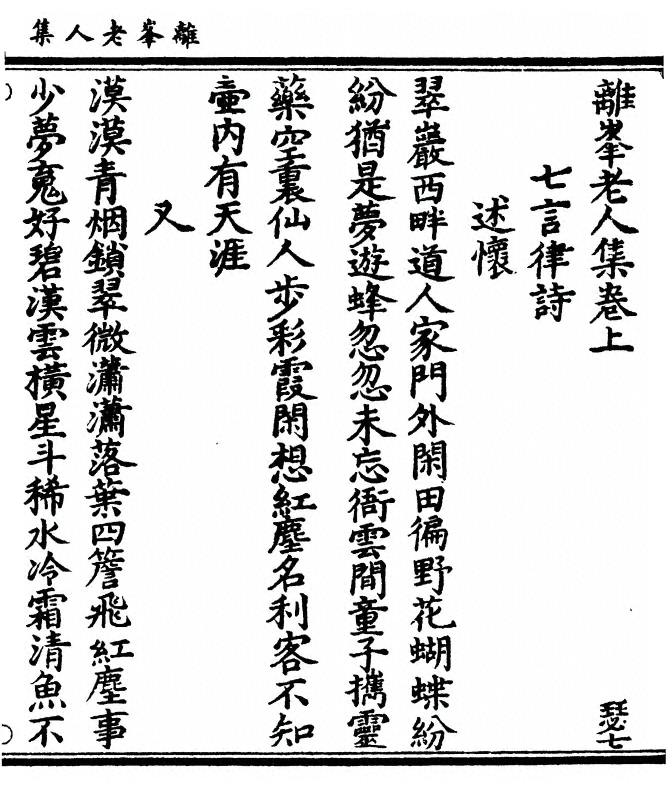 離峯老人集
離峯老人集卷上
瑟七
七言律詩
述懷
翠巖西畔道人家門外閑田徧野花蝴蝶紛
紛猶是夢遊蜂忽忽未忘衙雲間童子擕靈
藥空裏仙人步彩霞閑想紅塵名利客不知
壷内有天涯
又
漠漠青烟鎖翠微瀟瀟落葉四簷飛紅塵事
少夢䰟好碧漢雲橫星斗稀水冷霜清魚不